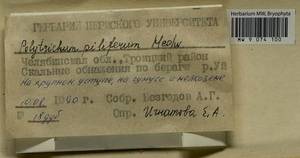 ГЕРБАРИЙ ПЕРМСКОГО УНИВЕРСИТЕТА
Polytrichum piliferum Hedw.
Челябинская обл., Троицкий район
Скальные обнажения по берегу р. Уй
На крупном уступе, на гумусе и мелкоземе
1990 г. Собр. Безгодов А.Г.
№ Опр. Игнатова Е.А.
Herbarium MW, Bryophyta
MW 9 074 100